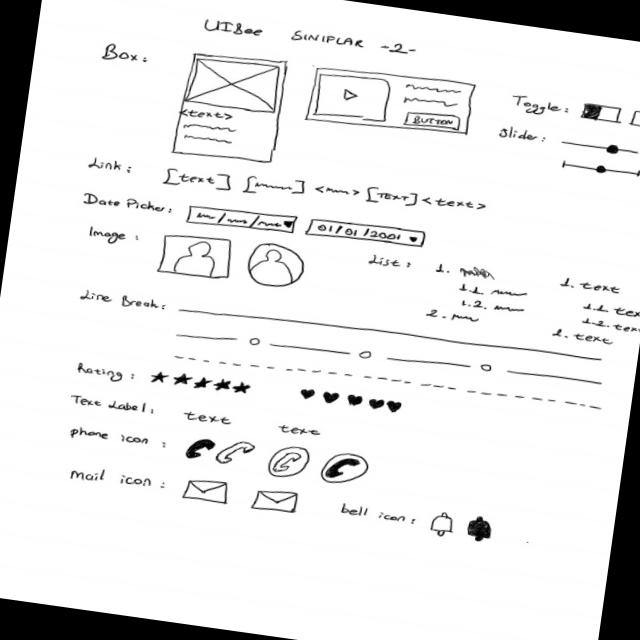 UIBee SINIFLAR -2-
Box:
<text>
BUTTON
Toggle:
Slider:
Link: [text] [ ] < > [TEXT] <text>
Date Picker: 01/01/2001
Image:
List: 1. 1. text
1.1. 1.1. tex
1.2. 1.2. tex
2. 2. text
Line Break:
Rating:
Text Label: text text
phone icon:
mail icon:
bell icon: